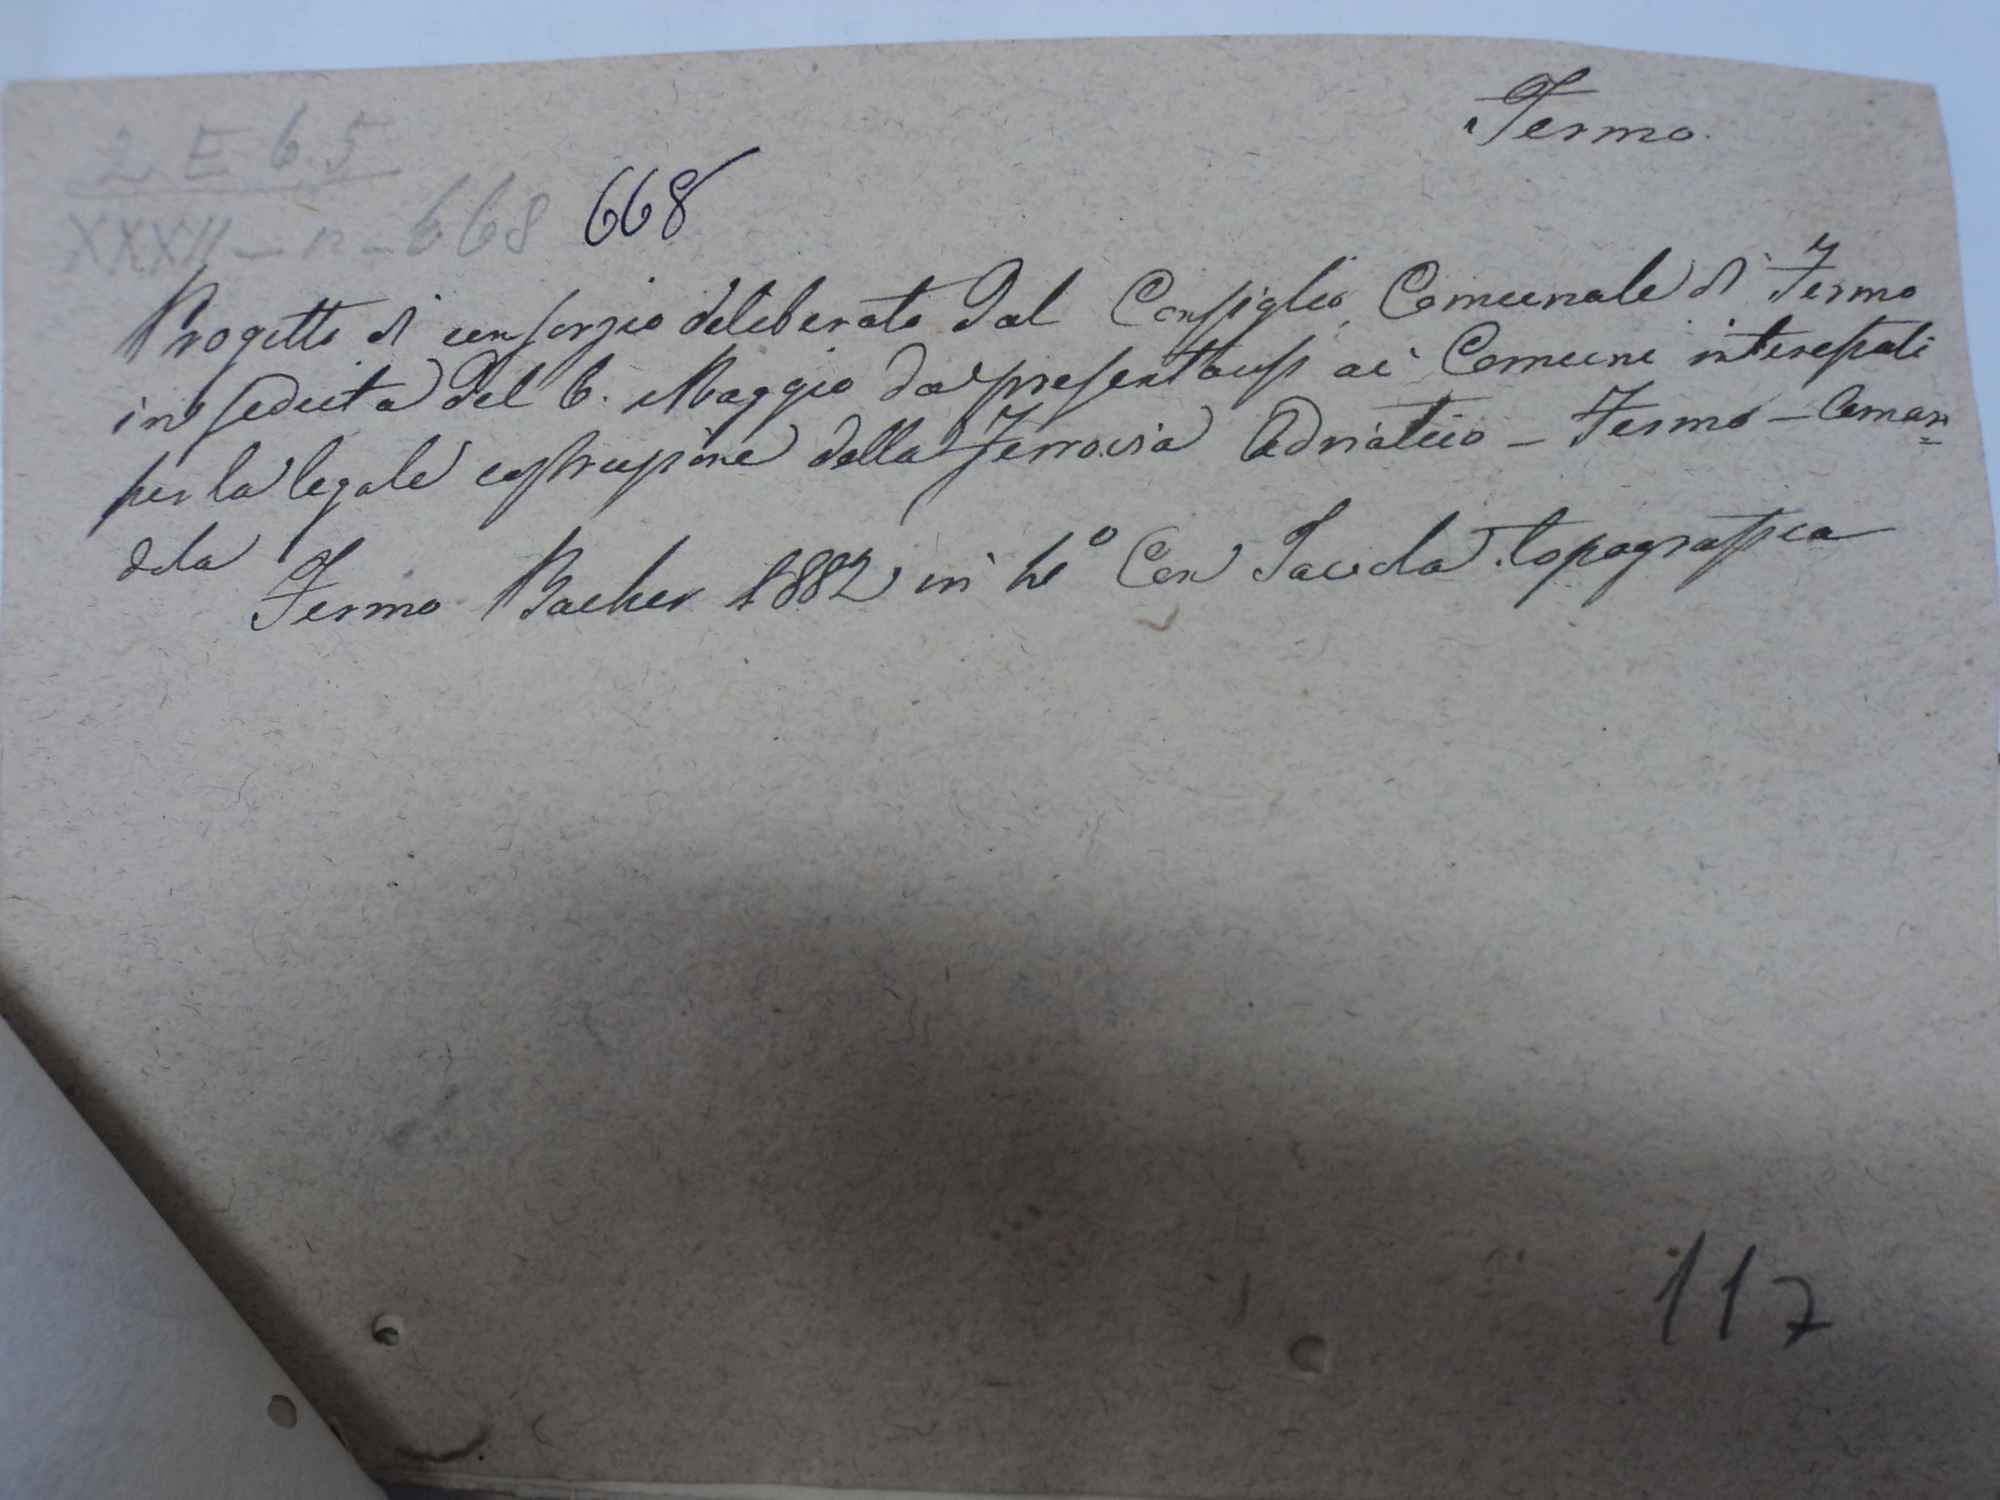 Fermo.
2 E 6.5
XXXII - n - 668 668
Progetto di consorzio deliberato dal Consiglio Comunale di Fermo
in seduta del 6. Maggio da presentarsi ai Comuni interessati
per la legale costruzione della Ferrovia Adriatico - Fermo - Aman=
dola
Fermo Bacher 1882 in 4º Con Tavola topografica
117